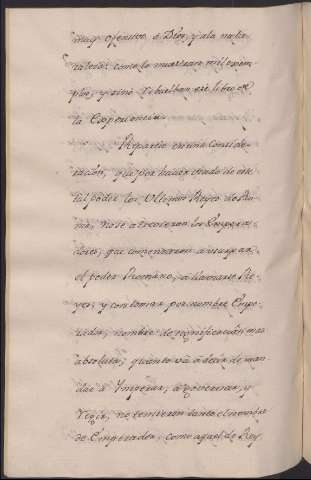 muy ofensivo à Dios, y ala natu-
raleza: como lo muestran mil exem-
plos, y sinò rebuelban ese libro de
la Experiencia.
Reparese en una consi-
deracion, que por haver usado de
tal poder los Ultimos Reyes de Ro-
ma, no se atrevieron los Empera-
dores, que comenzaron à usurpar
el poder Romano, à llamarse Re-
yes; y con tomar por nombre Empe-
rador, nombre de significacion mas
absoluta, quanto và à decir de man-
dar à Ymperar, à governar, y
regir, no temieron tanto el nombre
de Emperador, como aquel de Rey